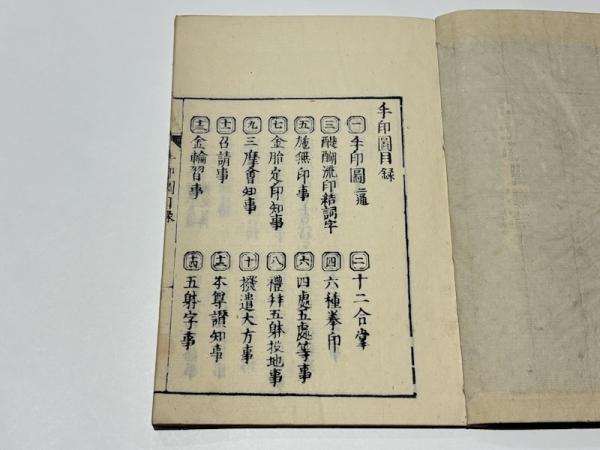 手印圖目録
一 手印圖二通
二 十二合掌
三 醍醐流印結詞字
四 六種拳印
五 施無印事
六 四處五處等事
七 金胎定印知事
八 禮拜五躰投地事
九 三摩會知事
十 撥遣大方事
十一 召請事
十二 本尊讃知事
十三 金輪習事
十四 五躰字事
手印圖目録